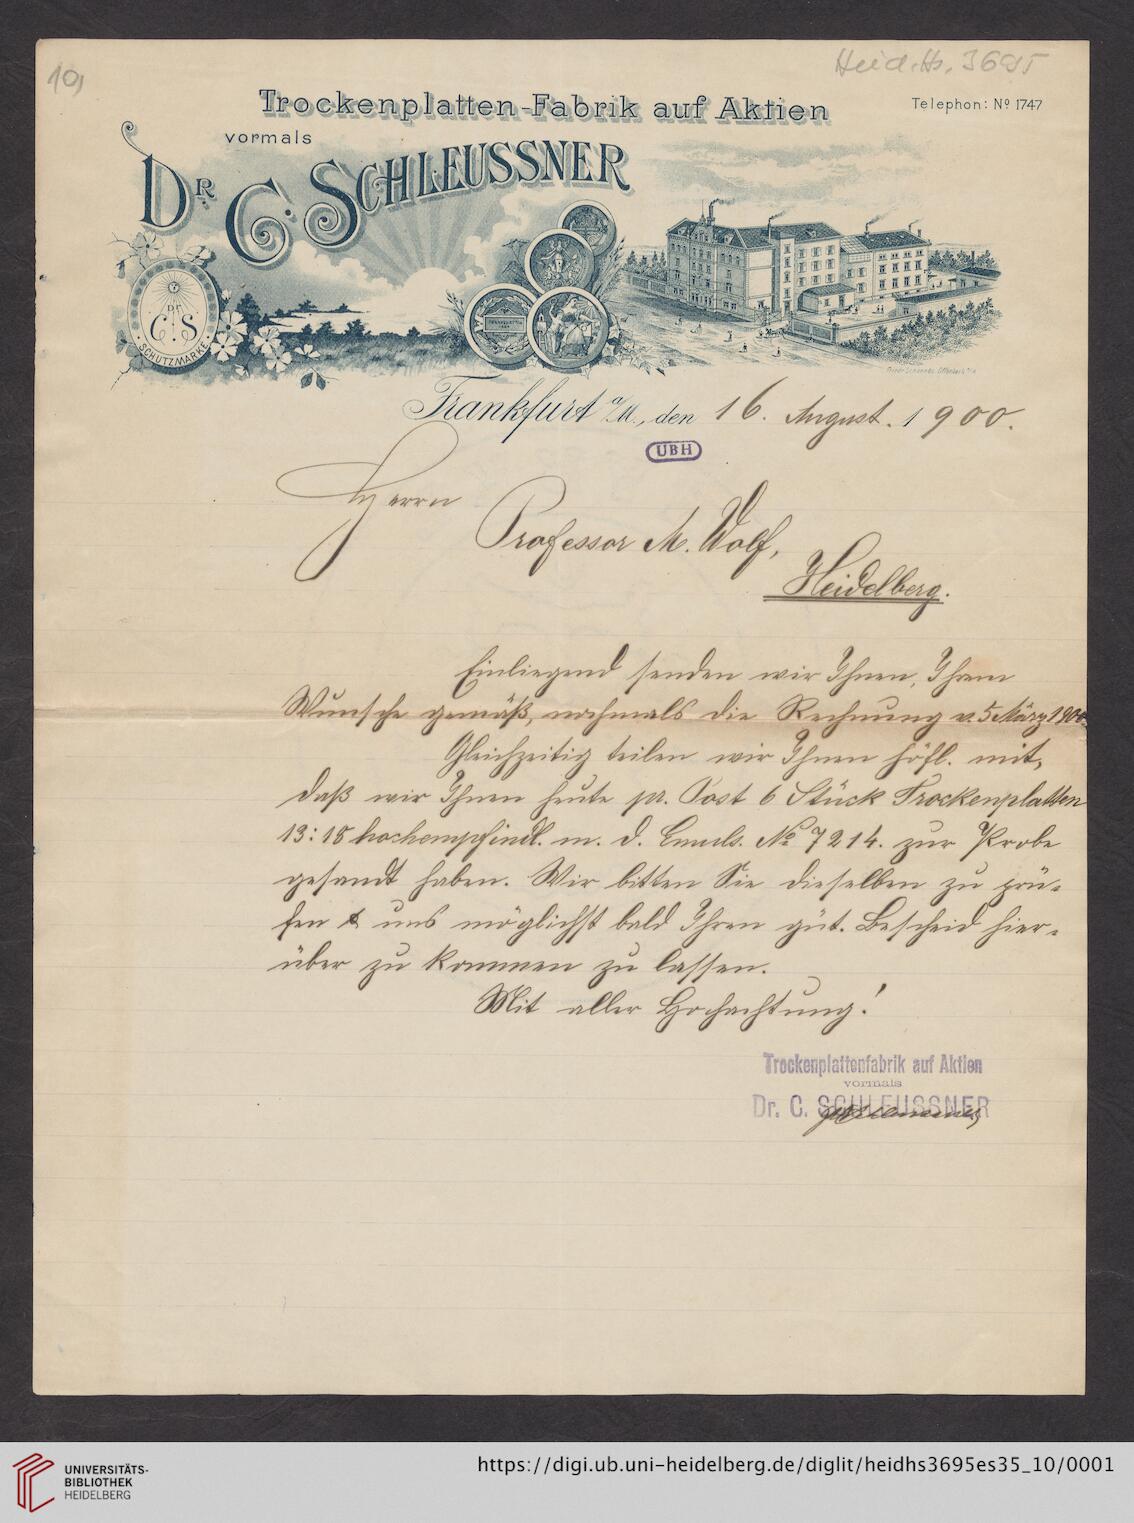 10)
Heid. Hs. 3695
Trockenplatten-Fabrik auf Aktien
Telephon: Nº 1747
vormals
DR. C. SCHLEUSSNER
DR
C. S
SCHUTZMARKE.
Frankfurt a/M., den 16. August. 1900.
UBH
Herrn
Professor M. Wolf,
Heidelberg.
Einliegend senden wir Ihnen, Ihrem
Wunsche gemäß, nochmals die Rechnung v. 5 März 1900.
Gleichzeitig teilen wir Ihnen höfl. mit,
daß wir Ihnen heute pr. Post 6 Stück Trockenplatten
13:18 hochempfindl. m. d. Emuls. Nº 7214. zur Probe
gesandt haben. Wir bitten Sie dieselben zu prü-
fen & uns möglichst bald Ihren güt. Bescheid hier-
über zu kommen zu lassen.
Mit aller Hochachtung!
Trockenplattenfabrik auf Aktien
vormals
Dr. C. SCHLEUSSNER
UNIVERSITÄTS-
BIBLIOTHEK
HEIDELBERG
https://digi.ub.uni-heidelberg.de/diglit/heidhs3695es35_10/0001